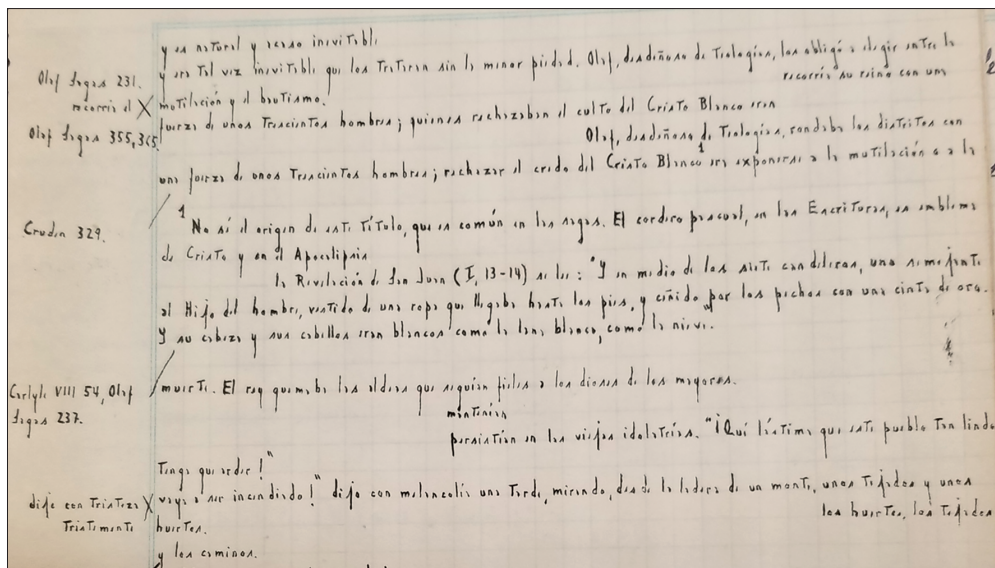 y es natural y acaso inevitable
y era tal vez inevitable que los trataran sin la menor piedad. Olaf, desdeñoso de teologías, los obligó a elegir entre la
Olaf Sagas 231.
recorrer su reino con una
recorría el X mutilación y el bautismo.
fuerza de unos trescientos hombres; quienes rechazaban el culto del Cristo Blanco eran
Olaf Sagas 355, 365
Olaf, desdeñoso de teologías, rondaba los distritos con
una fuerza de unos trescientos hombres; rechazar el credo del Cristo Blanco¹ era exponerse a la mutilación o a la
¹ No sé el origen de este título, que es común en las sagas. El cordero pascual, en las Escrituras, es emblema
Cruden 329.
de Cristo y en el Apocalipsis
la Revelación de San Juan (I, 13-14) se lee: "Y en medio de los siete candeleros, uno semejante
al Hijo del hombre, vestido de una ropa que llegaba hasta los pies, y ceñido por los pechos con una cinta de oro.
Y su cabeza y sus cabellos eran blancos como la lana blanca, como la nieve".
Carlyle VIII 54, Olaf
Sagas 237.
muerte. El rey quemaba las aldeas que seguían fieles a los dioses de los mayores.
mantenían
persistían en las viejas idolatrías. "¡Qué lástima que este pueblo tan lindo
tenga que arder!"
vaya a ser incendiado!" dijo con melancolía una tarde, mirando, desde la ladera de un monte, unos tejados y unos
dijo con tristeza X
los huertos, los tejados
tristemente
huertos.
y los caminos.